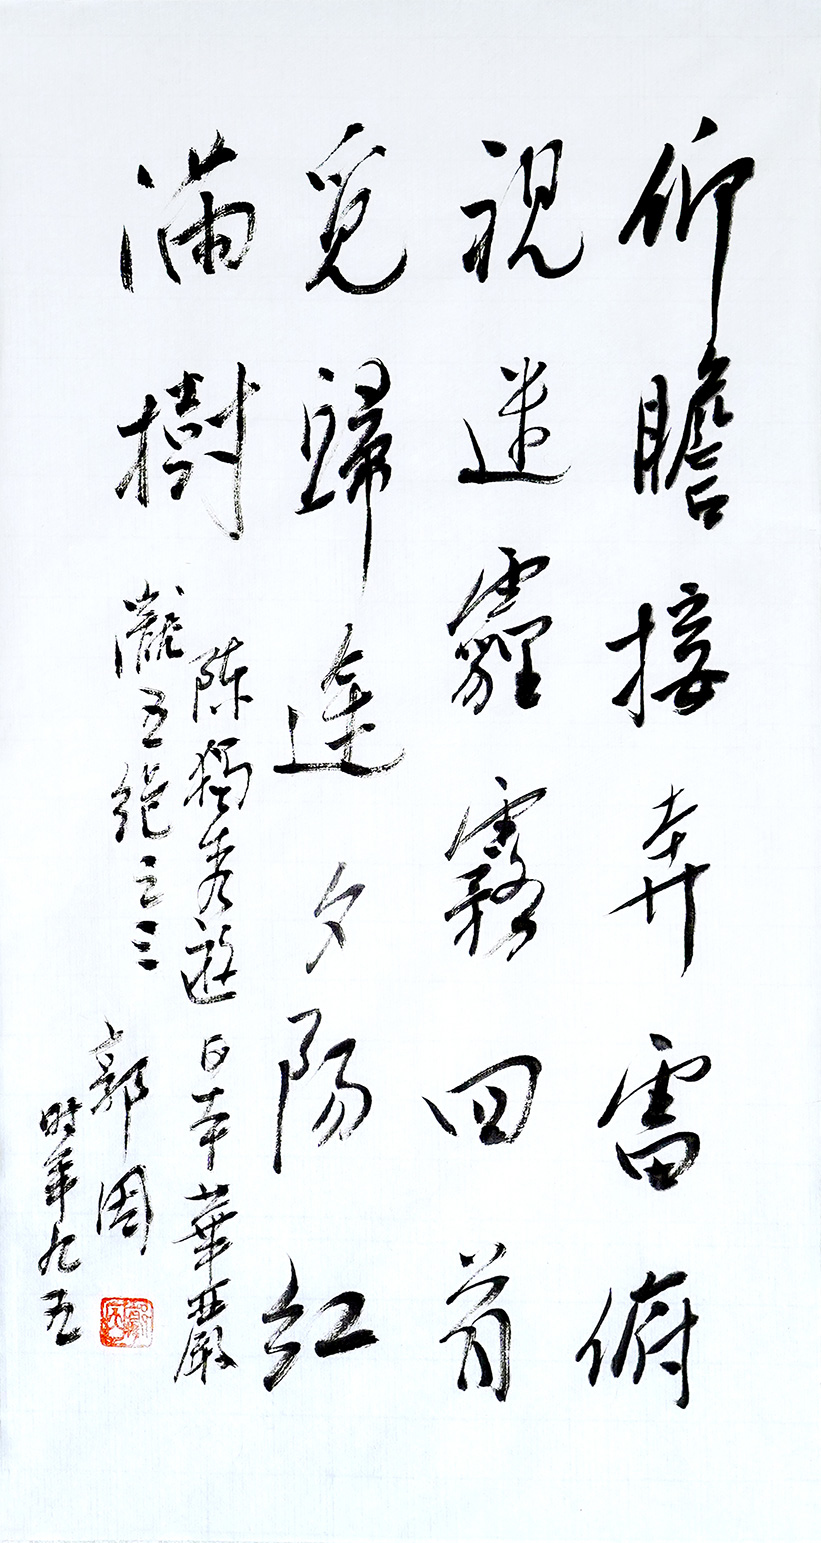 仰瞻接奔雷俯
視迷霾霧回首
覓歸途夕陽紅
滿樹
陈獨秀遊日本華嚴
瀧五絕之三
郭因
时年九五